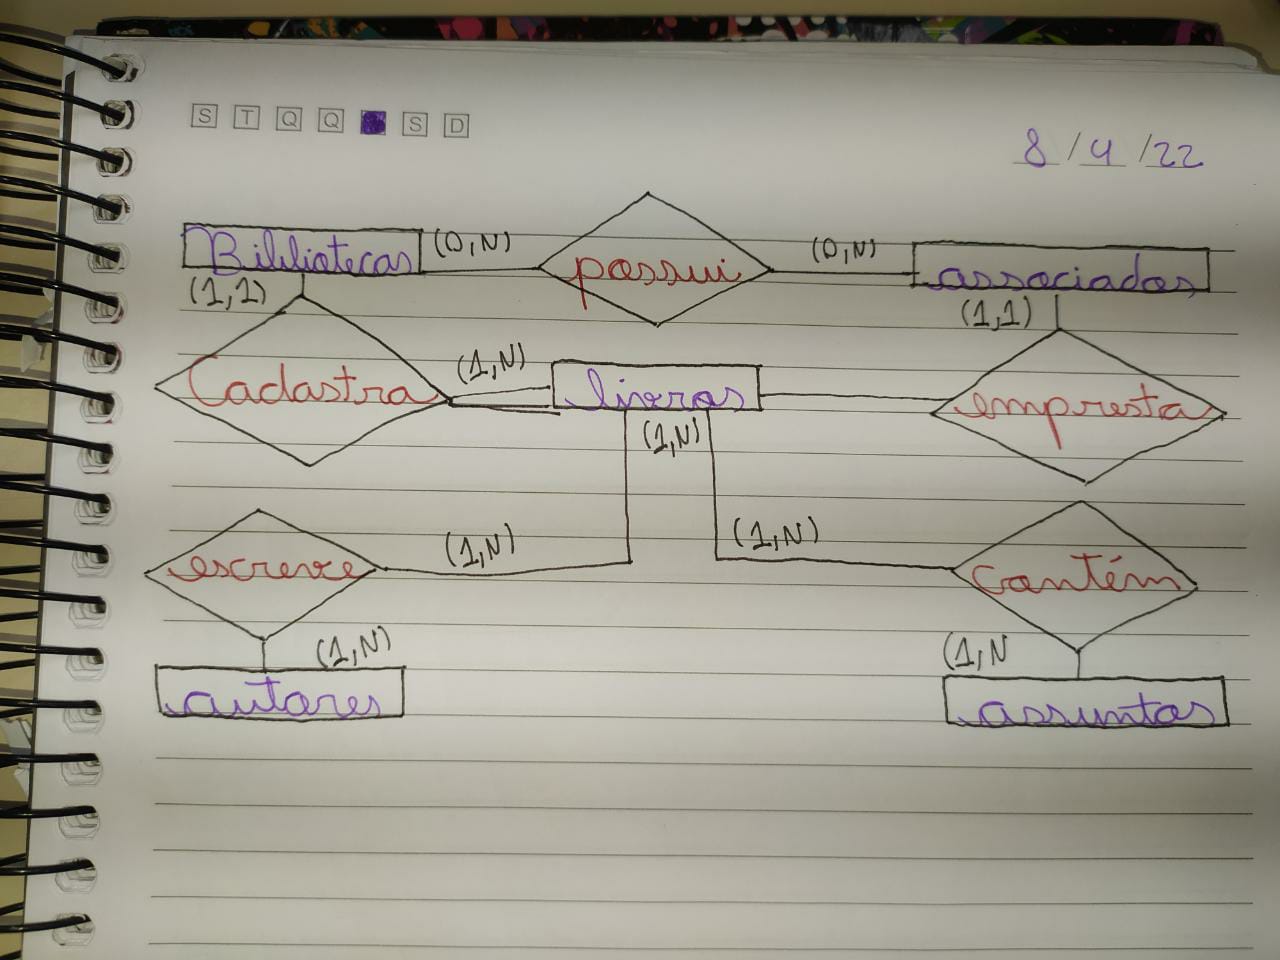 S T Q Q S D
8/4/22
Bibliotecas (0,N) possui (0,N) associados
(1,1) (1,1)
Cadastra (1,N) livros empresta
(1,N)
escreve (1,N) (1,N) Contém
(1,N) (1,N
autores assuntos